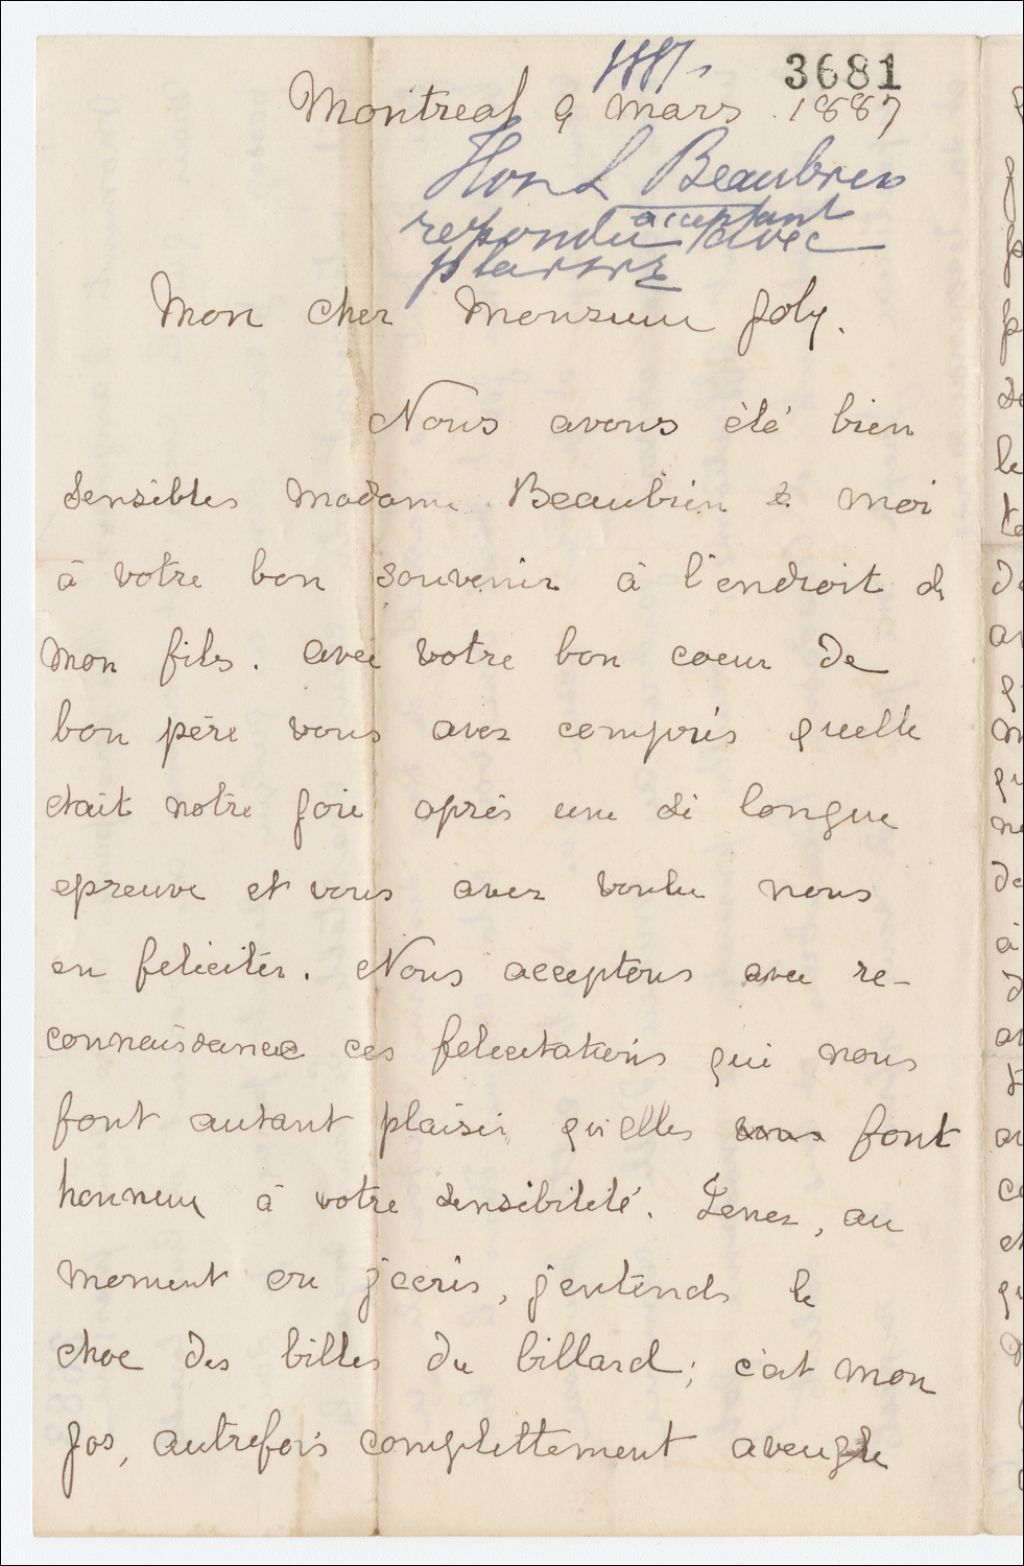 1887
3681
Montreal 9 Mars 1887
Hon L Beaubien
acceptant
repondu avec
plaisir
Mon cher Monsieur Joly.
Nous avons été bien
sensibles Madame Beaubien & moi
à votre bon souvenir à l'endroit de
mon fils. avec votre bon coeur de
bon père vous avez compris quelle
etait notre joie après une si longue
epreuve et vous avez voulu nous
en feliciter. Nous acceptons avec re-
connaissance ces felicitations qui nous
font autant plaisir qu'elles font
honneur à votre sensibilité. Tenez, au
moment ou j'ecris, j'entends le
choc des billes du billard; c'est mon
Jos, autrefois complettement aveugle